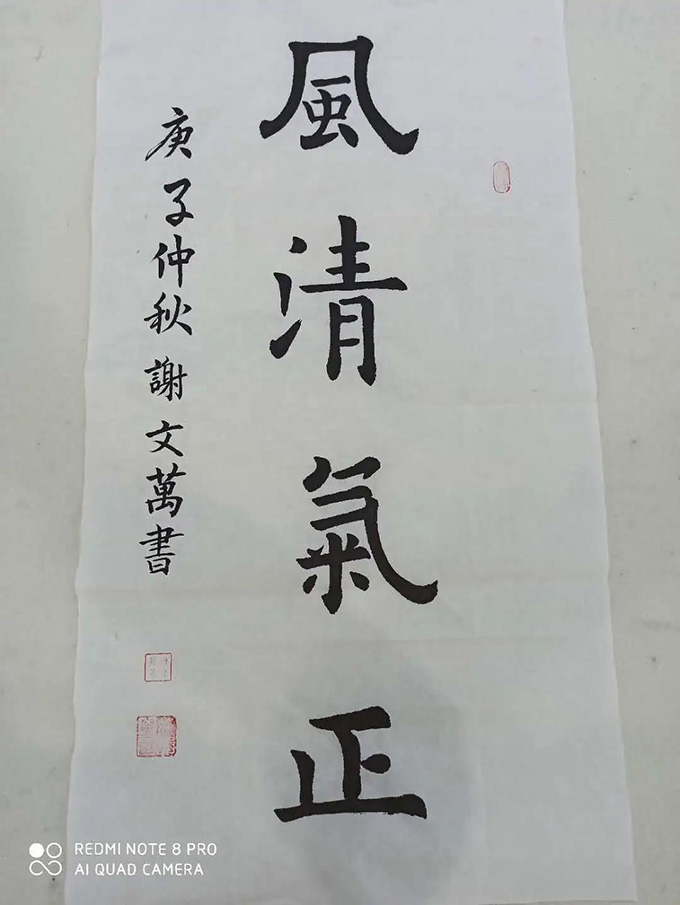 風清氣正
庚子仲秋 謝文萬書
REDMI NOTE 8 PRO
AI QUAD CAMERA